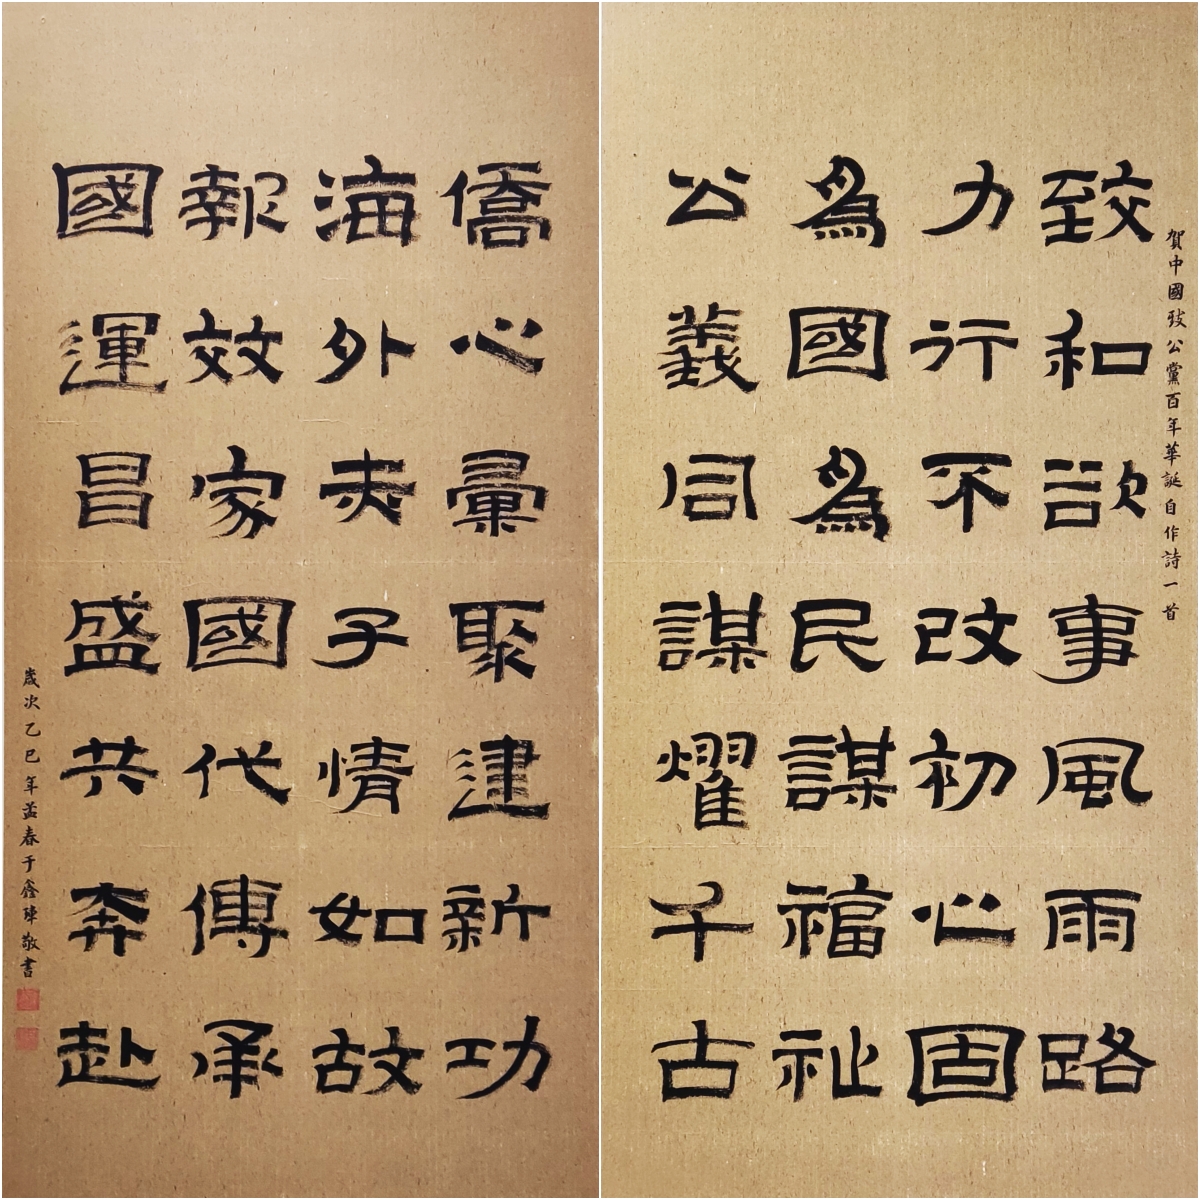 賀中國致公黨百年華誕自作詩一首
致和欲事風雨路
力行不改初心固
爲國爲民謀福祉
公義同謀燿千古
僑心彙聚建新功
海外赤子情如故
報效家國代傳承
國運昌盛共奔赴
歲次乙巳年孟春于鑫敬書